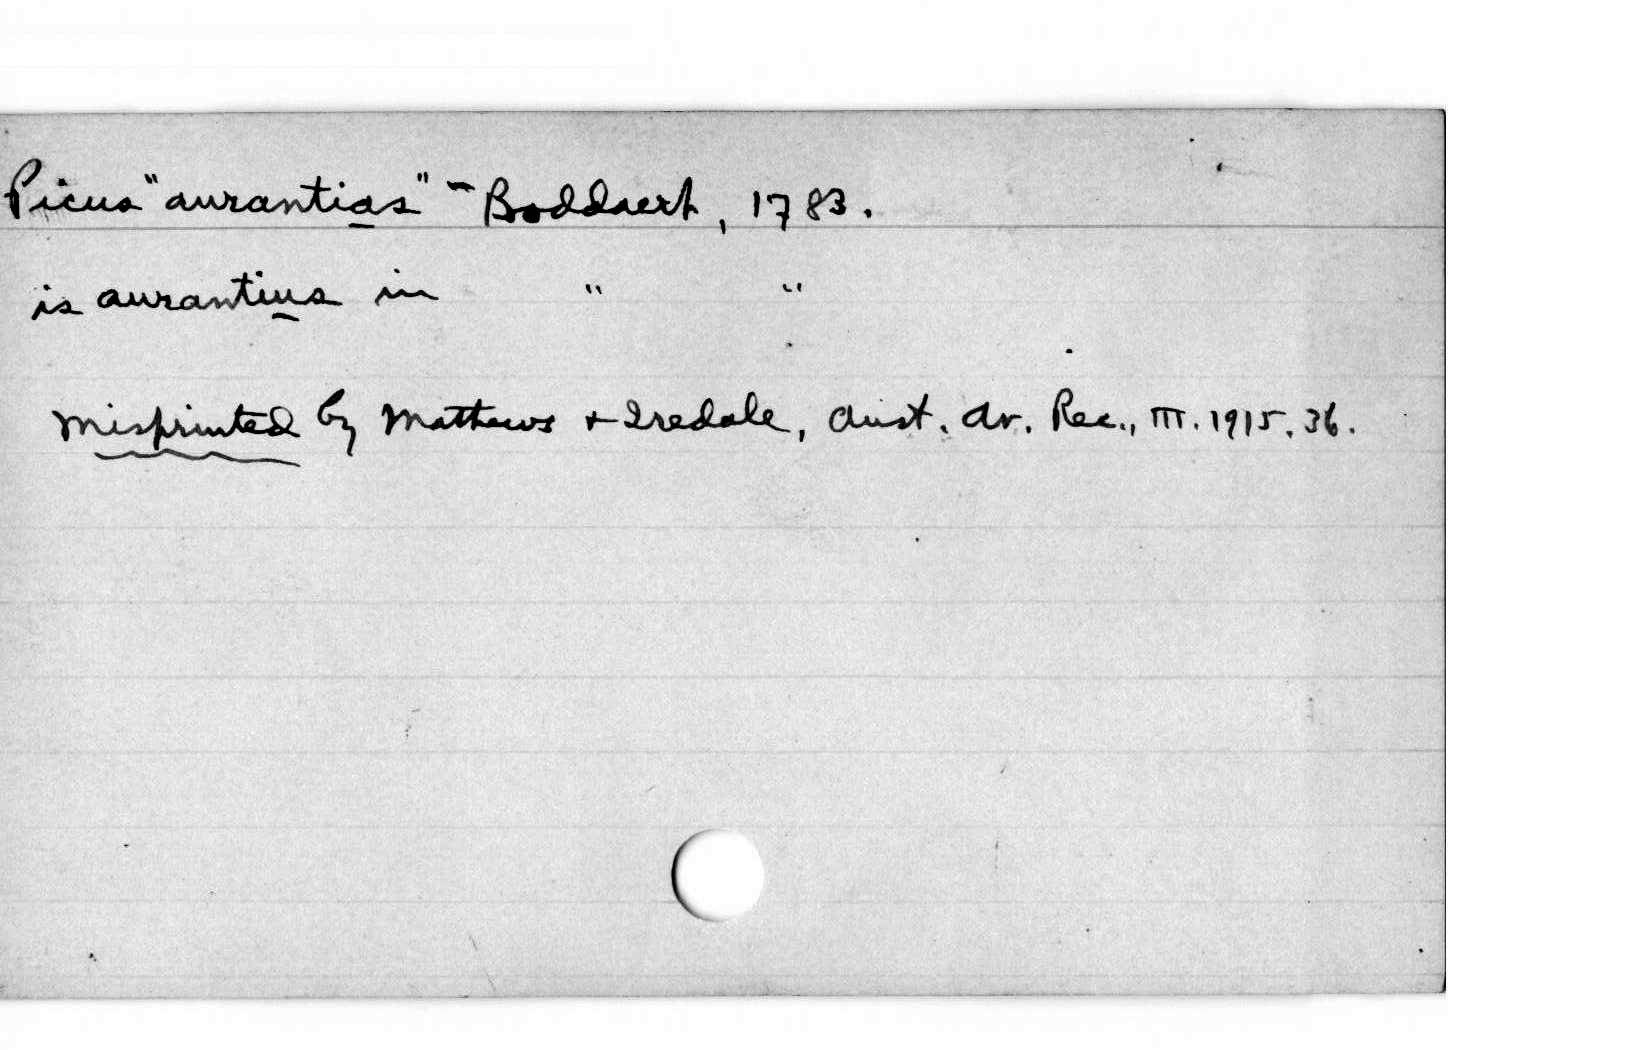 Picus "aurantias" - Boddaert, 1783.
is aurantius in " "
Misprinted by Mathews + Iredale, Aust. Av. Rec., III. 1915. 36.